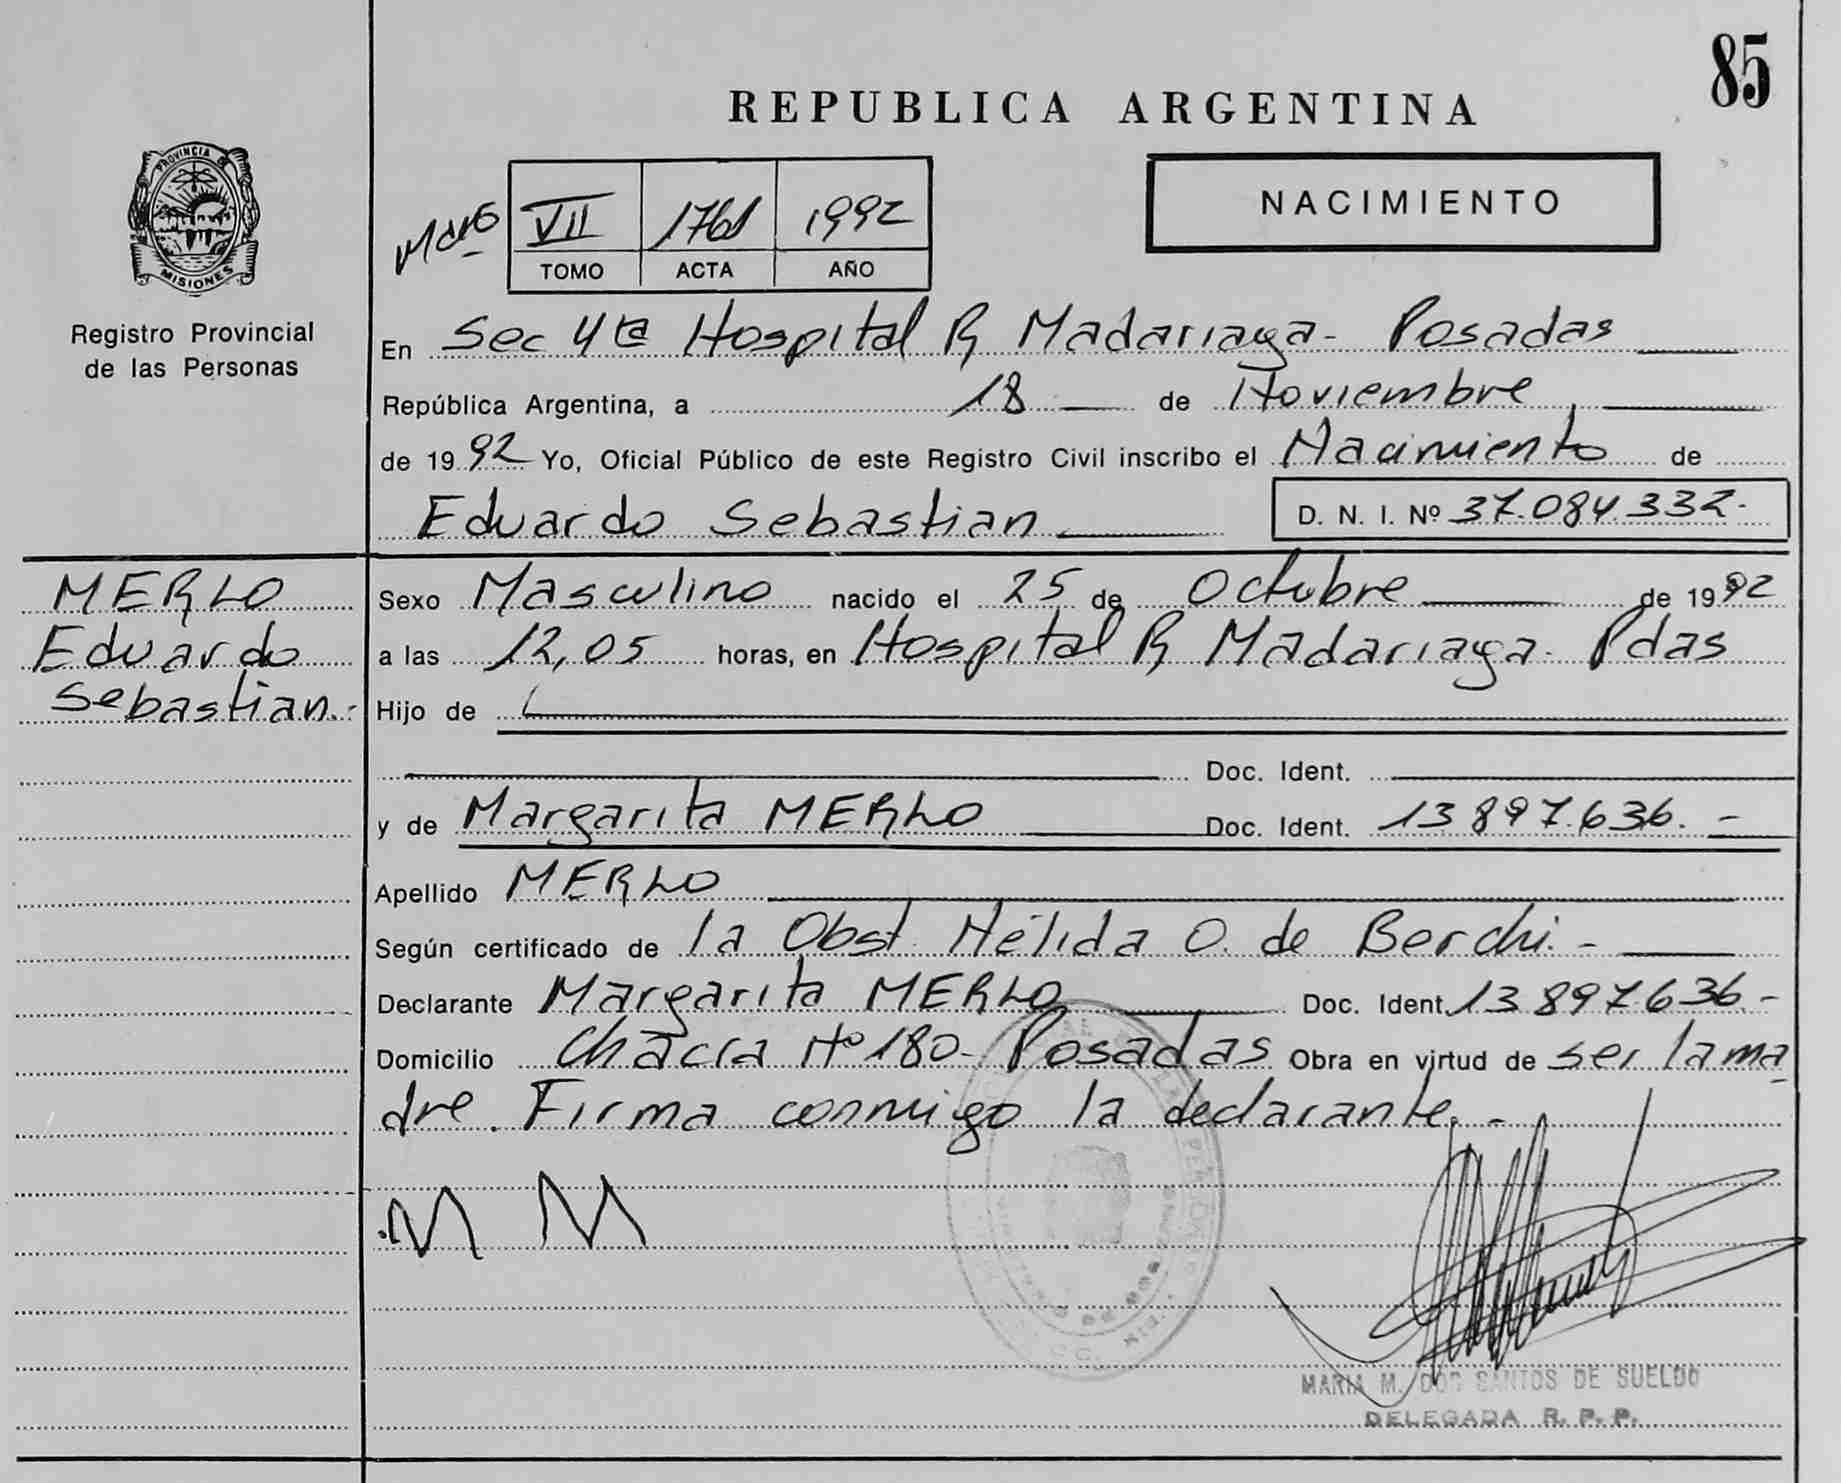 85
REPUBLICA ARGENTINA
PROVINCIA DE
MISIONES
Registro Provincial
de las Personas
VII 1761 1992
TOMO ACTA AÑO
NACIMIENTO
En Sec 4ta Hospital R Madariaga - Posadas
República Argentina, a 18 de Noviembre
de 1992 Yo, Oficial Público de este Registro Civil inscribo el Nacimiento de
Eduardo Sebastian D. N. I. Nº 37.084.332-
MERLO
Eduardo
Sebastian.-
Sexo Masculino nacido el 25 de Octubre de 1992
a las 12,05 horas, en Hospital R Madariaga - Pdas
Hijo de
Doc. Ident.
y de Margarita MERLO Doc. Ident. 13.897.636.-
Apellido MERLO
Según certificado de la Obst. Nélida O. de Berchi.-
Declarante Margarita MERLO Doc. Ident. 13.897.636.-
Domicilio Chacra Nº 180- Posadas Obra en virtud de ser la ma
dre. Firma conmigo la declarante.-
M M
MARIA M. DOS SANTOS DE SUELDO
DELEGADA R. P. P.